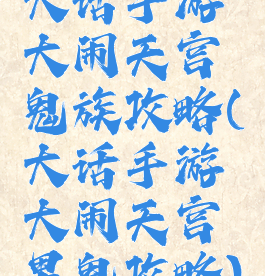 大话手游
大闹天宫
鬼族攻略(
大话手游
大闹天宫
男鬼攻略)